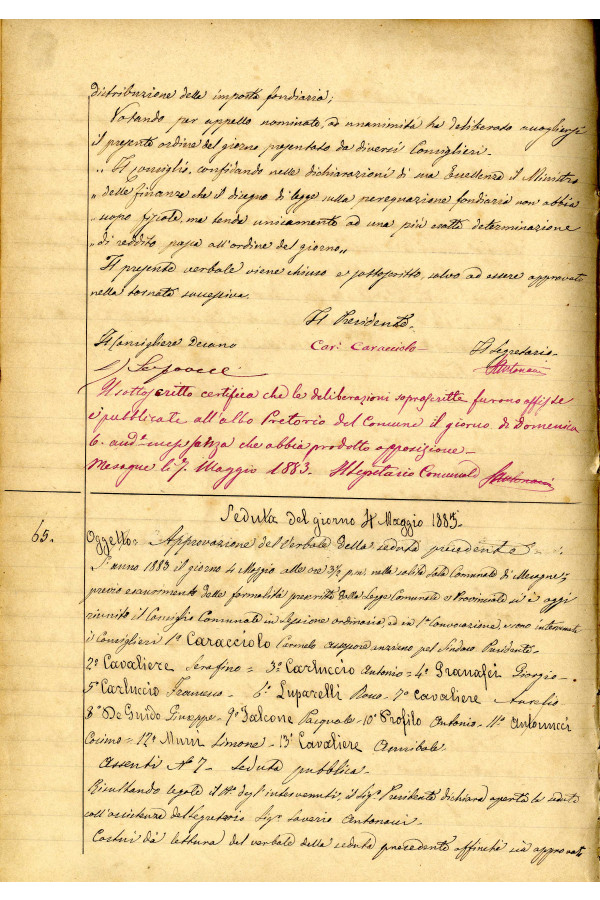 distribuzione delle imposta fondiaria;
Votando per appello nominale, ad unanimità ha deliberato accogliersi
il presente ordine del giorno presentato da diversi Consiglieri.
„ Il Consiglio, confidando nelle dichiarazioni di sua Eccellenza il Ministro
„ delle finanze che il disegno di legge sulla perequazione fondiaria non abbia
„ scopo fiscale, ma tende unicamente ad una più esatta determinazione
„ di reddito passa all'ordine del giorno„
Il presente verbale viene chiuso e sottoscritto, salvo ad essere approvato
nella tornata successiva.
Il Presidente
Il Consigliere Decano Car. Caracciolo Il Segretario
SAntonucci
Il sottoscritto certifica che le deliberazioni soprascritte furono affisse
e pubblicate all'albo Pretorio del Comune il giorno di Domenica
6. and.e mese senza che abbia prodotto opposizione.
Mesagne li 7. Maggio 1883. Il Segretario Comunale SAntonucci
Seduta del giorno 4 Maggio 1883.
65. Oggetto: Approvazione del Verbale della seduta precedente
L'anno 1883 il giorno 4 Maggio alle ore 3½ p.m. nella solita Sala Comunale di Mesagne,
previo esaurimento delle formalità prescritte dalla Legge Comunale e Provinciale si è oggi
riunito il Consiglio Comunale in sessione ordinaria, ed in 1ª Convocazione, e sono intervenuti
i Consiglieri 1º Caracciolo Carmelo assessore anziano pel Sindaco Presidente.
2º Cavaliere Serafino = 3º Carluccio Antonio = 4º Granafei Giorgio =.
5º Carluccio Francesco = 6º Luparelli Rosa = 7º Cavaliere Aurelio.
8º De Guido Giuseppe = 9º Falcone Pasquale = 10º Profilo Antonio = 11º Antonucci
Cosimo = 12º Murri Simone = 13º Cavaliere Annibale.
Assenti Nº 7 = Seduta pubblica.
Risultando legale il Nº degl'intervenuti, il Sig.r Presidente dichiara aperta la seduta
coll'assistenza del Segretario Sig.r Saverio Antonucci
Costui dà lettura del verbale della seduta precedente affinchè sia approvato